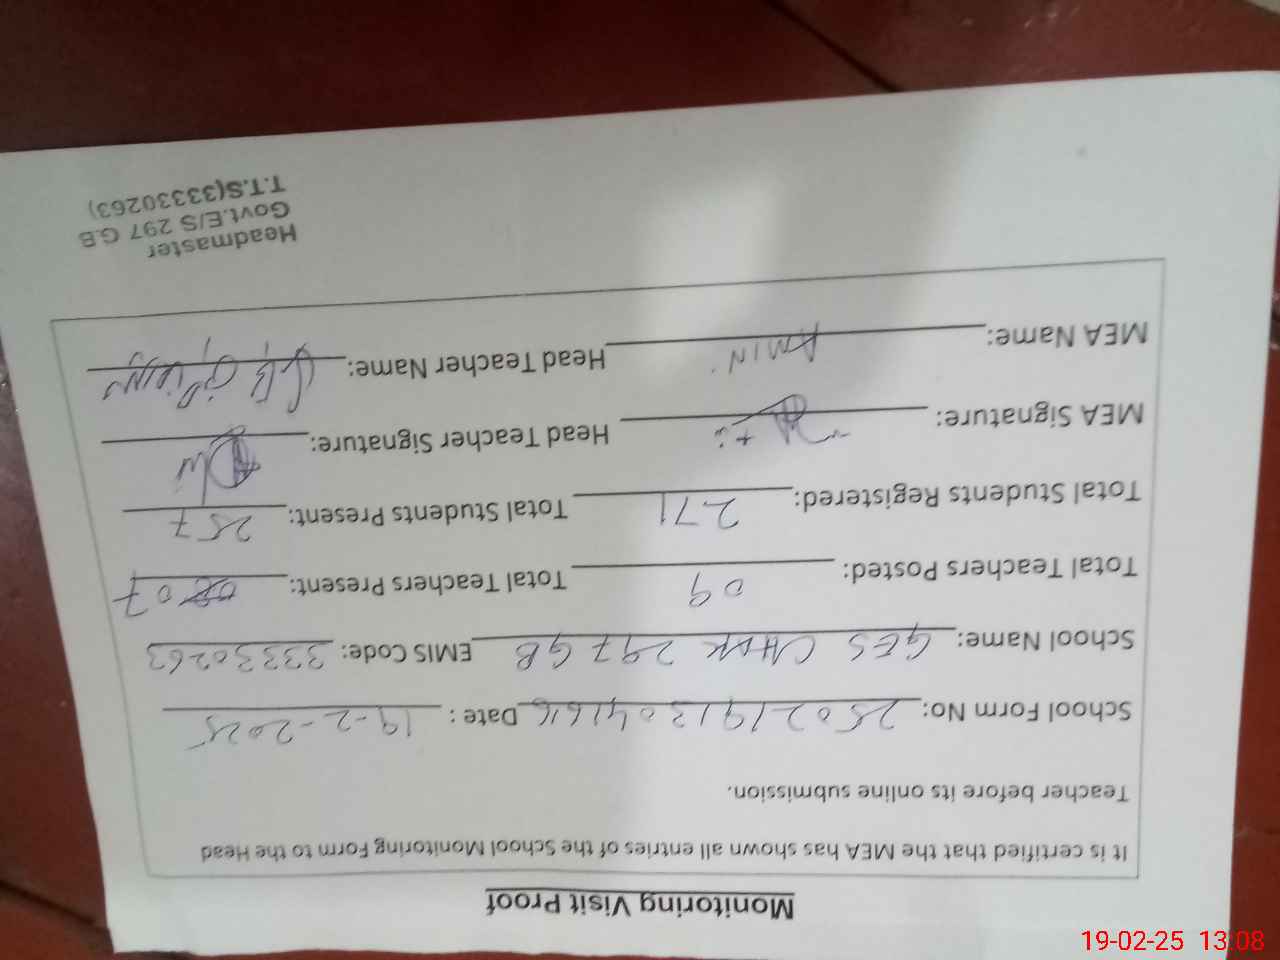 Monitoring Visit Proof
It is certified that the MEA has shown all entries of the School Monitoring Form to the Head
Teacher before its online submission.
School Form No: 25021913041616 Date : 19-2-2025
School Name: GES CHAK 297 GB EMIS Code: 33330263
Total Teachers Posted: 09 Total Teachers Present: 07
Total Students Registered: 271 Total Students Present: 257
MEA Signature: Head Teacher Signature:
MEA Name: AMIN Head Teacher Name:
Headmaster
Govt.E/S 297 G.B
T.T.S(33330263)
19-02-25 13:08